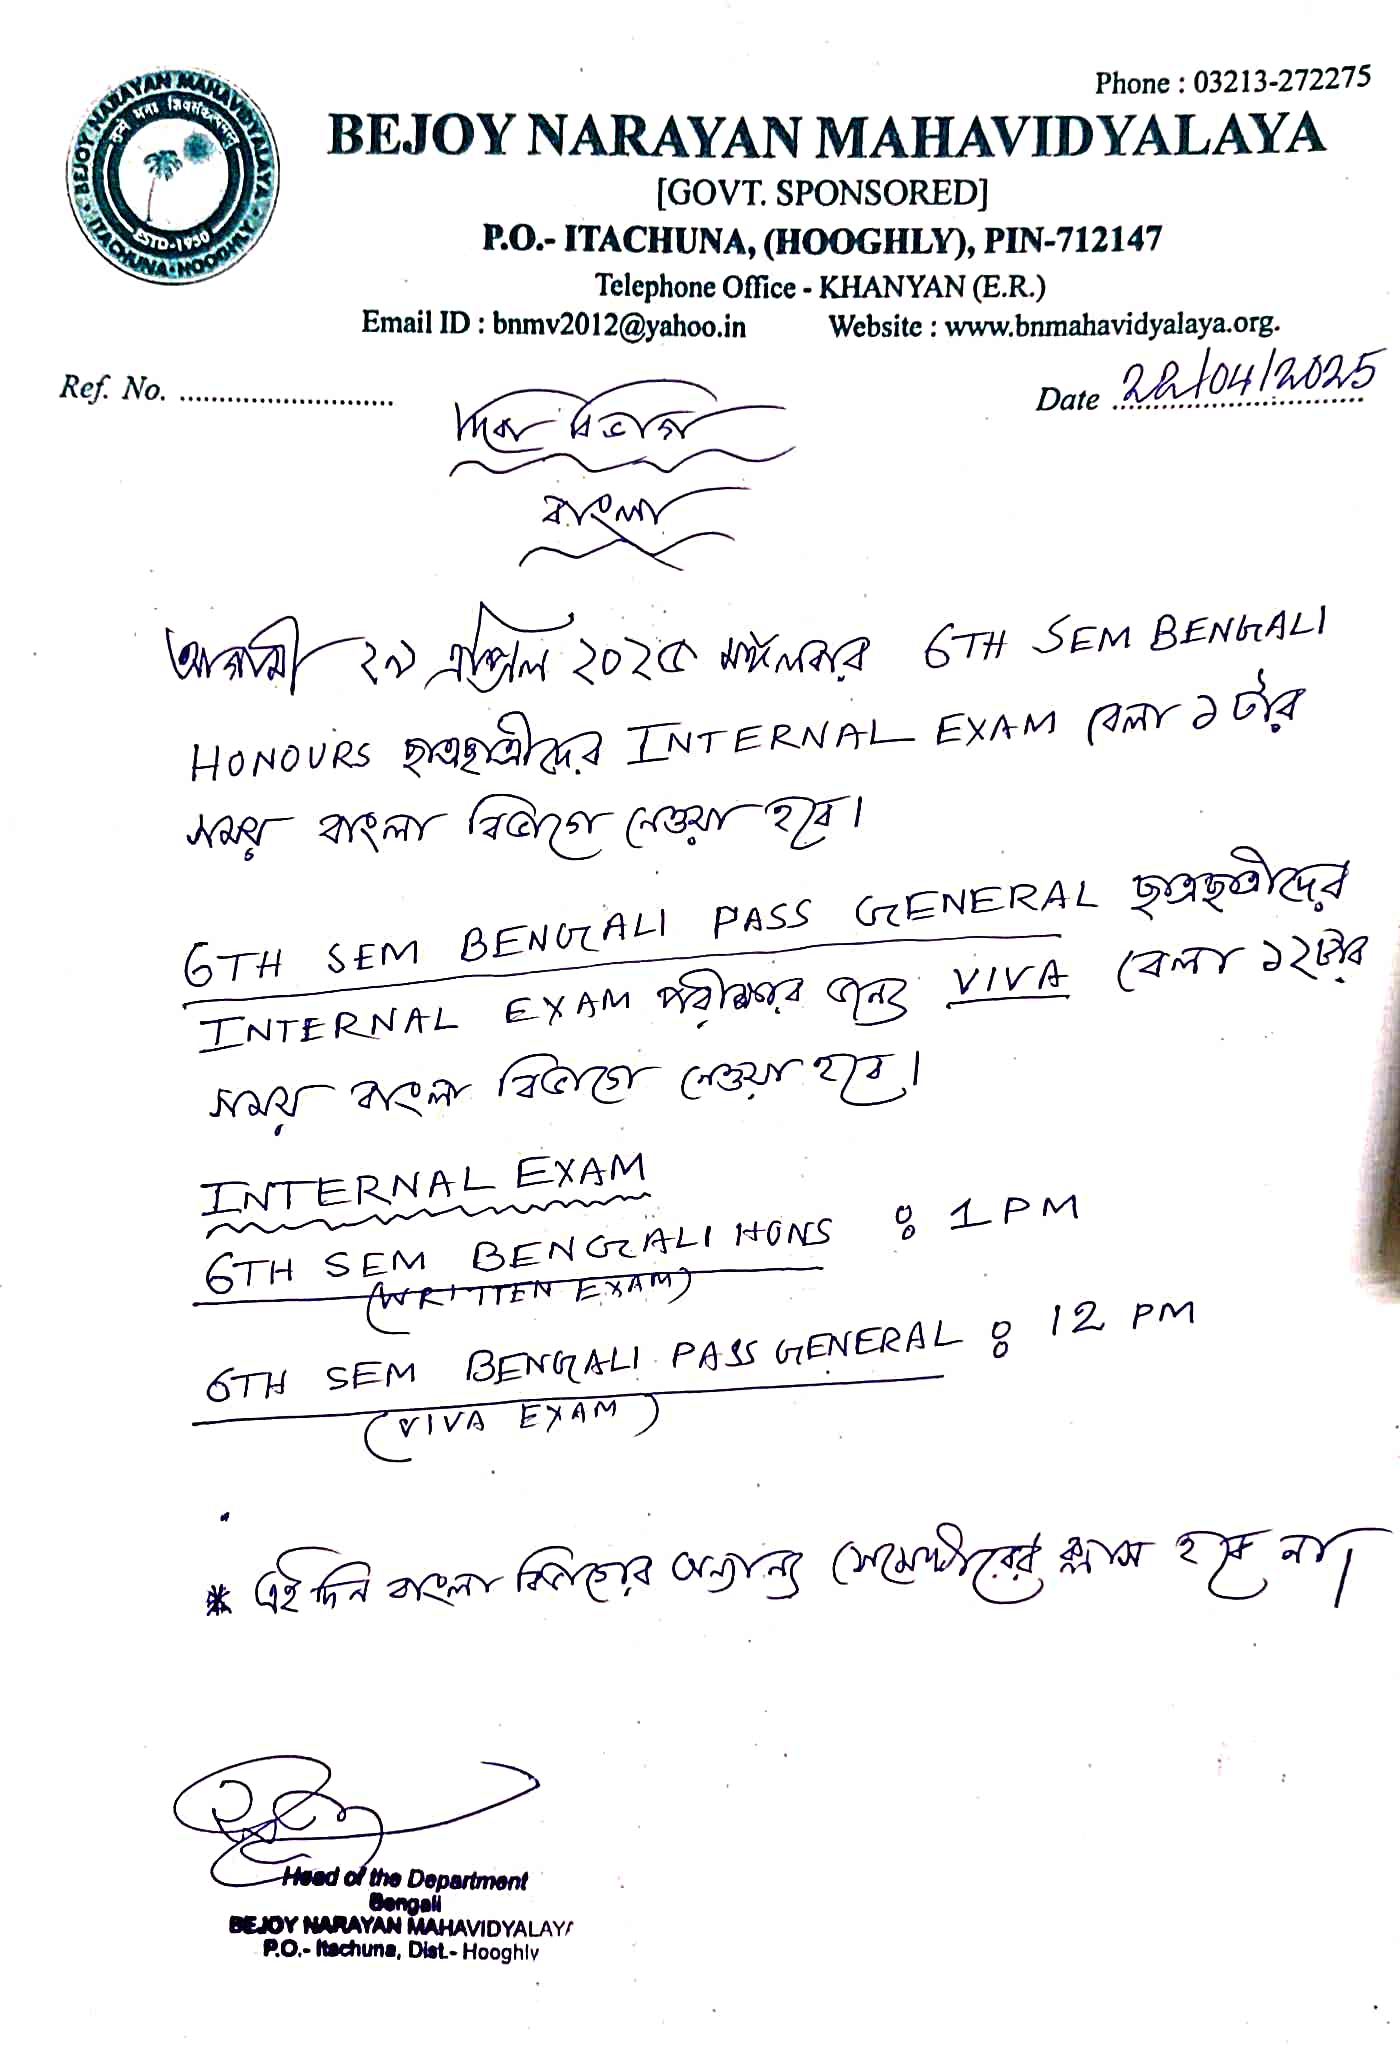 Phone : 03213-272275
BEJOY NARAYAN MAHAVIDYALAYA
[GOVT. SPONSORED]
P.O.- ITACHUNA, (HOOGHLY), PIN-712147
Telephone Office - KHANYAN (E.R.)
Email ID : bnmv2012@yahoo.in Website : www.bnmahavidyalaya.org.
BEJOY NARAYAN MAHAVIDYALAYA
ESTD-1950
ITACHUNA-HOOGHLY
Ref. No. ..........................
Date 22/04/2025
দিবা বিভাগ
বাংলা
আগামী ২৯ এপ্রিল ২০২৫ মঙ্গলবার 6TH SEM BENGALI
HONOURS ছাত্রছাত্রীদের INTERNAL EXAM বেলা ১ টার
সময় বাংলা বিভাগে নেওয়া হবে।
6TH SEM BENGALI PASS GENERAL ছাত্রছাত্রীদের
INTERNAL EXAM পরীক্ষার জন্য VIVA বেলা ১২টার
সময় বাংলা বিভাগে নেওয়া হবে।
INTERNAL EXAM
6TH SEM BENGALI HONS : 1 PM
(WRITTEN EXAM)
6TH SEM BENGALI PASS GENERAL : 12 PM
(VIVA EXAM)
* এই দিন বাংলা বিভাগের অন্যান্য সেমেস্টারের ক্লাস হবে না।
Head of the Department
Bengali
BEJOY NARAYAN MAHAVIDYALAYA
P.O.- Itachuna, Dist.- Hooghly